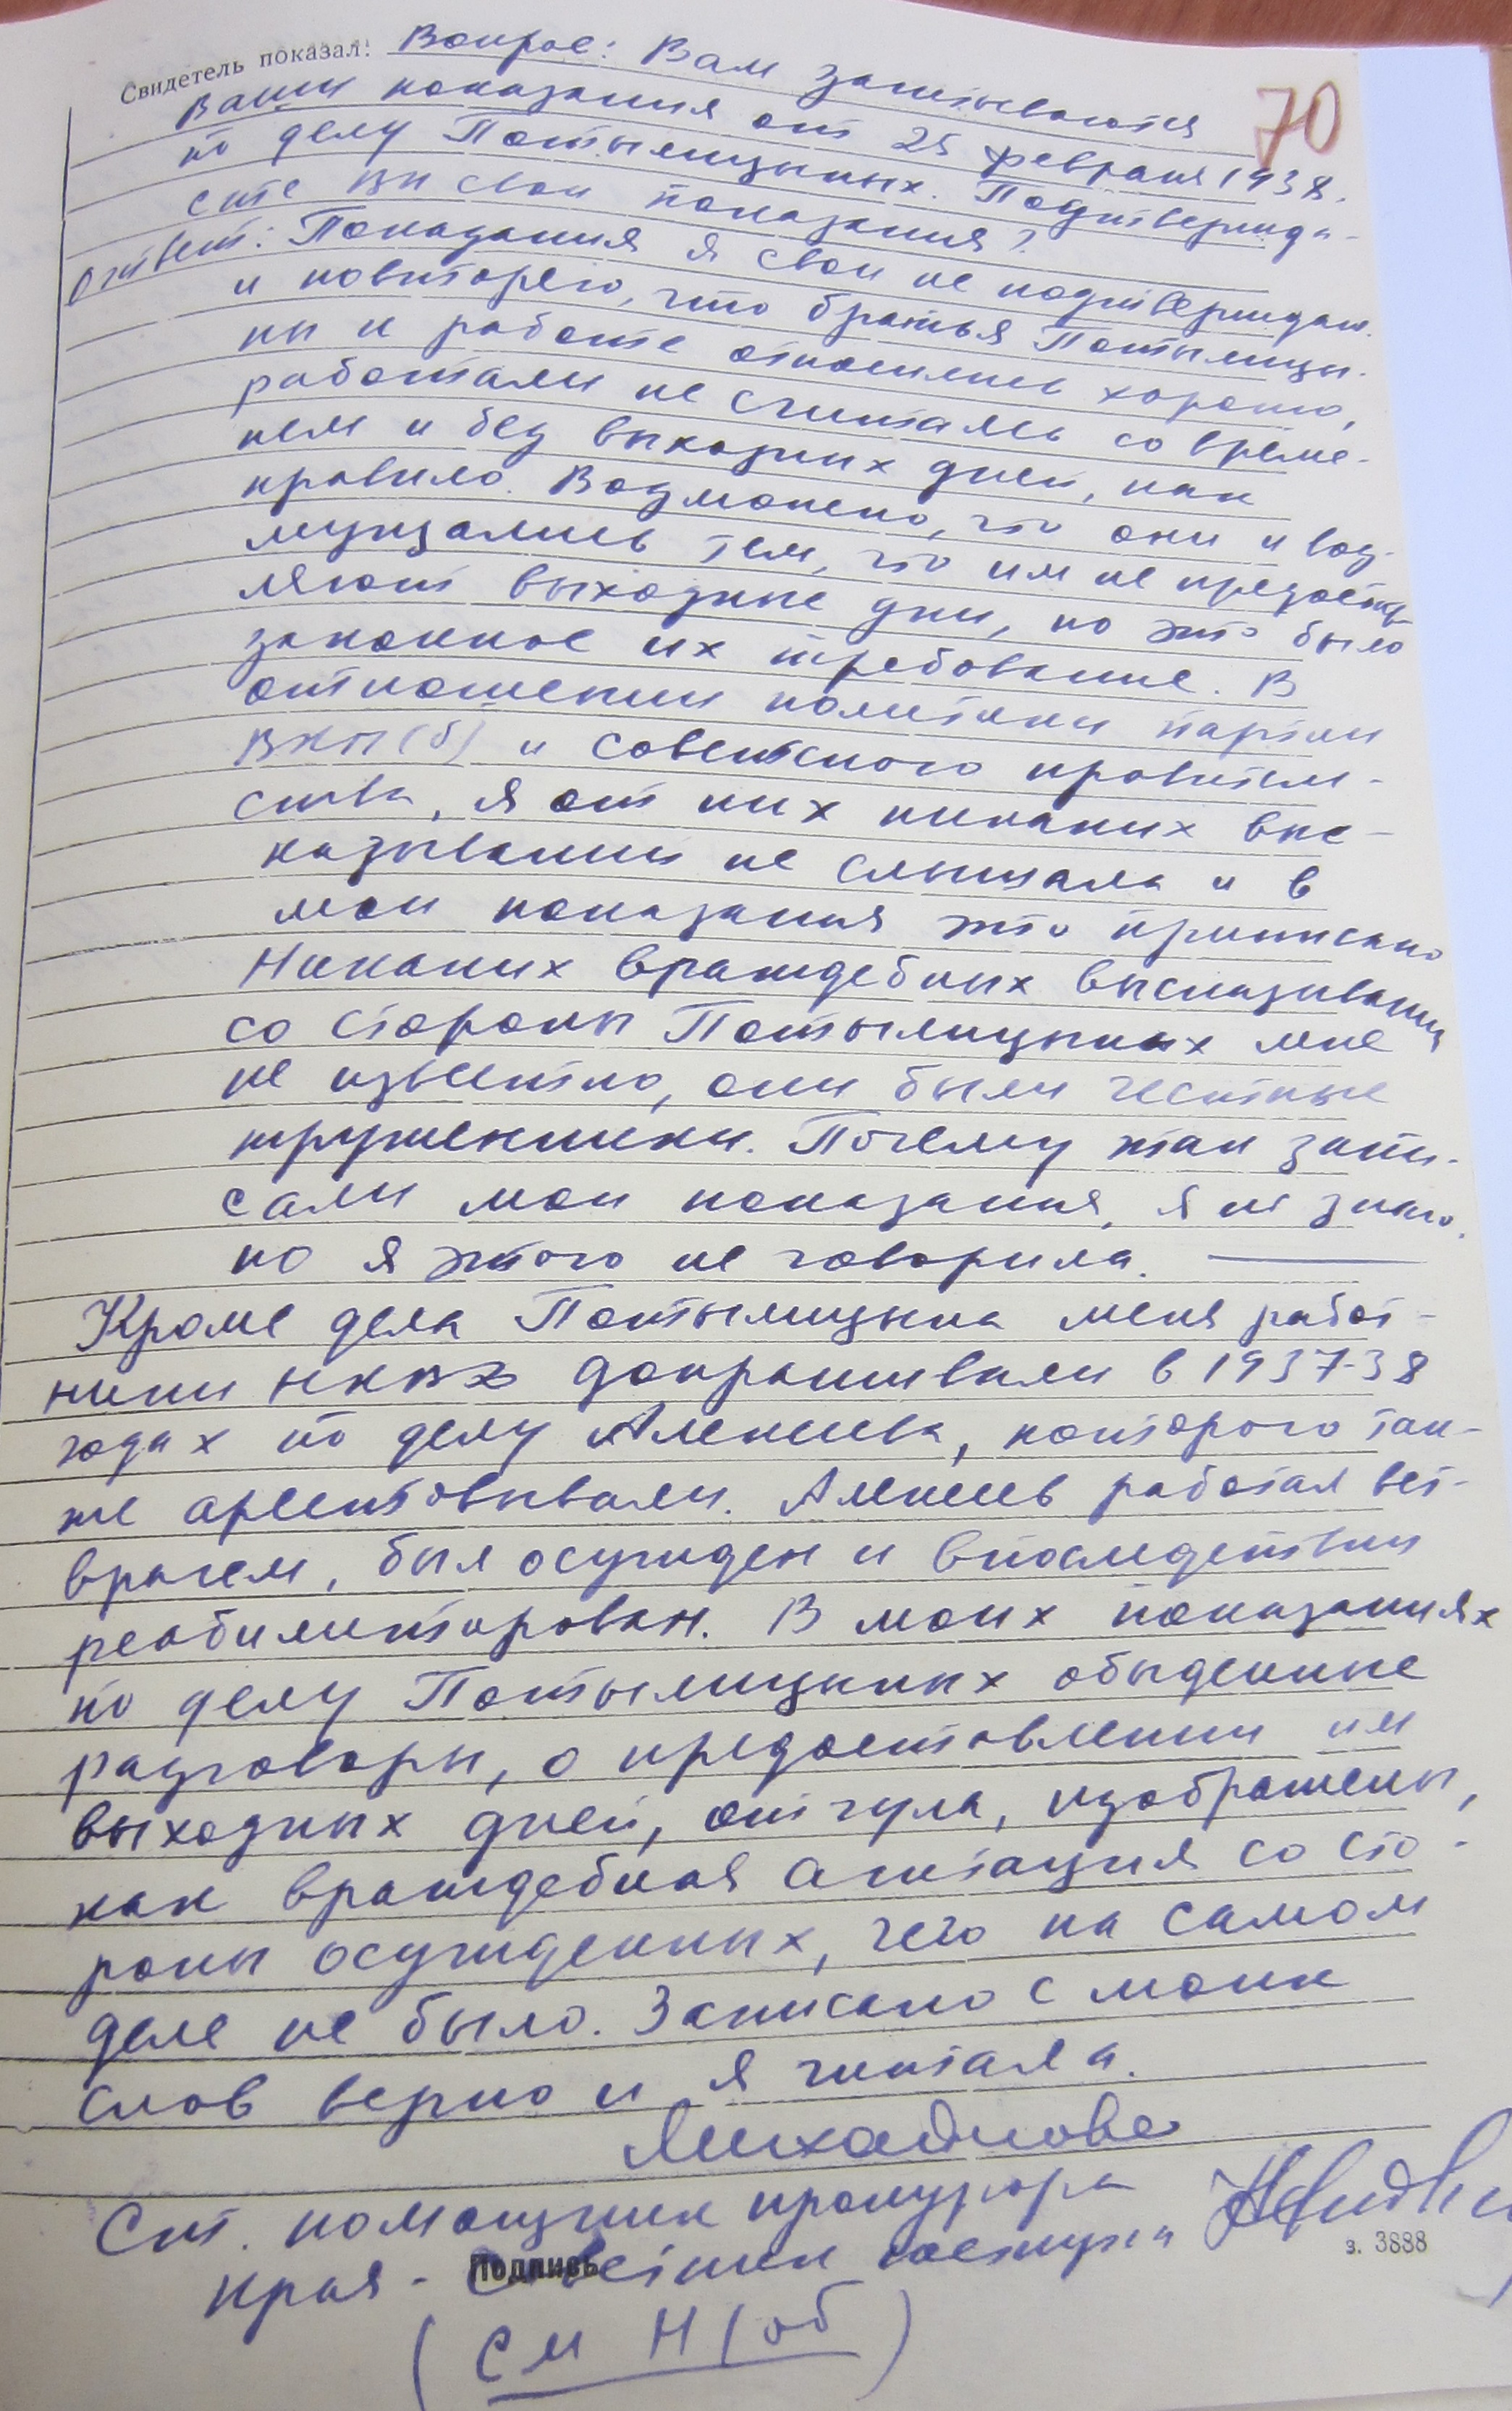 70
Свидетель показал: Вопрос: Вам зачитываются
Ваши показания от 25 февраля 1938.
по делу Потылицыных. Подтвержда-
ете вы свои показания?
Ответ: Показания я свои не подтверждаю
и повторяю, что братья Потылицы-
ны к работе относились хорошо,
работали не считаясь со време-
нем и без выходных дней, как
правило. Возможно, что они и воз-
мущались тем, что им не предостав
ляют выходные дни, но это было
законное их требование. В
отношении политики партии
ВКП(б) и советского правитель-
ства, я от них никаких выс-
казываний не слышала и в
мои показания это приписано
Никаких враждебных высказываний
со стороны Потылицыных мне
не известно, они были честные
труженики. Почему так запи-
сали мои показания, я не знаю,
но я этого не говорила.
Кроме дела Потылицына меня работ-
ники НКВД допрашивали в 1937-38
годах по делу Алексеева, которого так-
же арестовывали. Алексеев работал вет-
врачем, был осужден и впоследствии
реабилитирован. В моих показаниях
по делу Потылицыных обыденные
разговоры, о предоставлении им
выходных дней, отгула, изображены,
как враждебная агитация со сто-
роны осужденных, чего на самом
деле не было. Записано с моих
слов верно и я читала.
Михайлова
Ст. помощник прокурора
края - советник юстиции
Подпись
з. 3888
(см н/об)